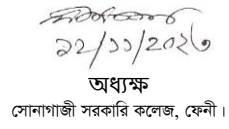 ১২/১১/২০২৩
অধ্যক্ষ
সোনাগাজী সরকারি কলেজ, ফেনী।